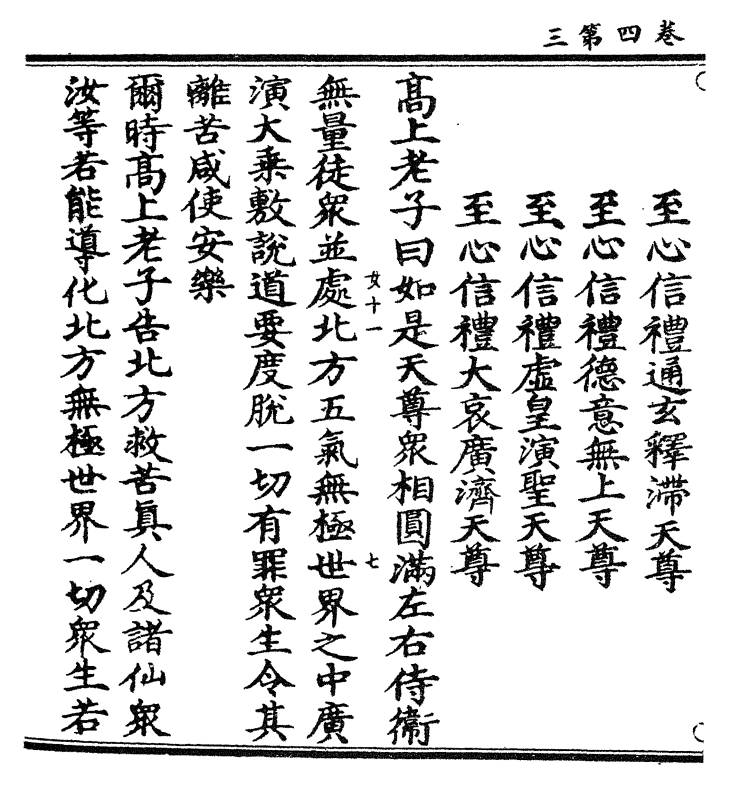 卷四第三
至心信禮通玄釋滯天尊
至心信禮德意無上天尊
至心信禮虛皇演聖天尊
至心信禮大哀廣濟天尊
高上老子曰如是天尊衆相圓滿左右侍衞
女十一
七
無量徒衆並處北方五氣無極世界之中廣
演大乘敷說道要度脫一切有罪衆生令其
離苦咸使安樂
爾時高上老子告北方救苦眞人及諸仙衆
汝等若能導化北方無極世界一切衆生若